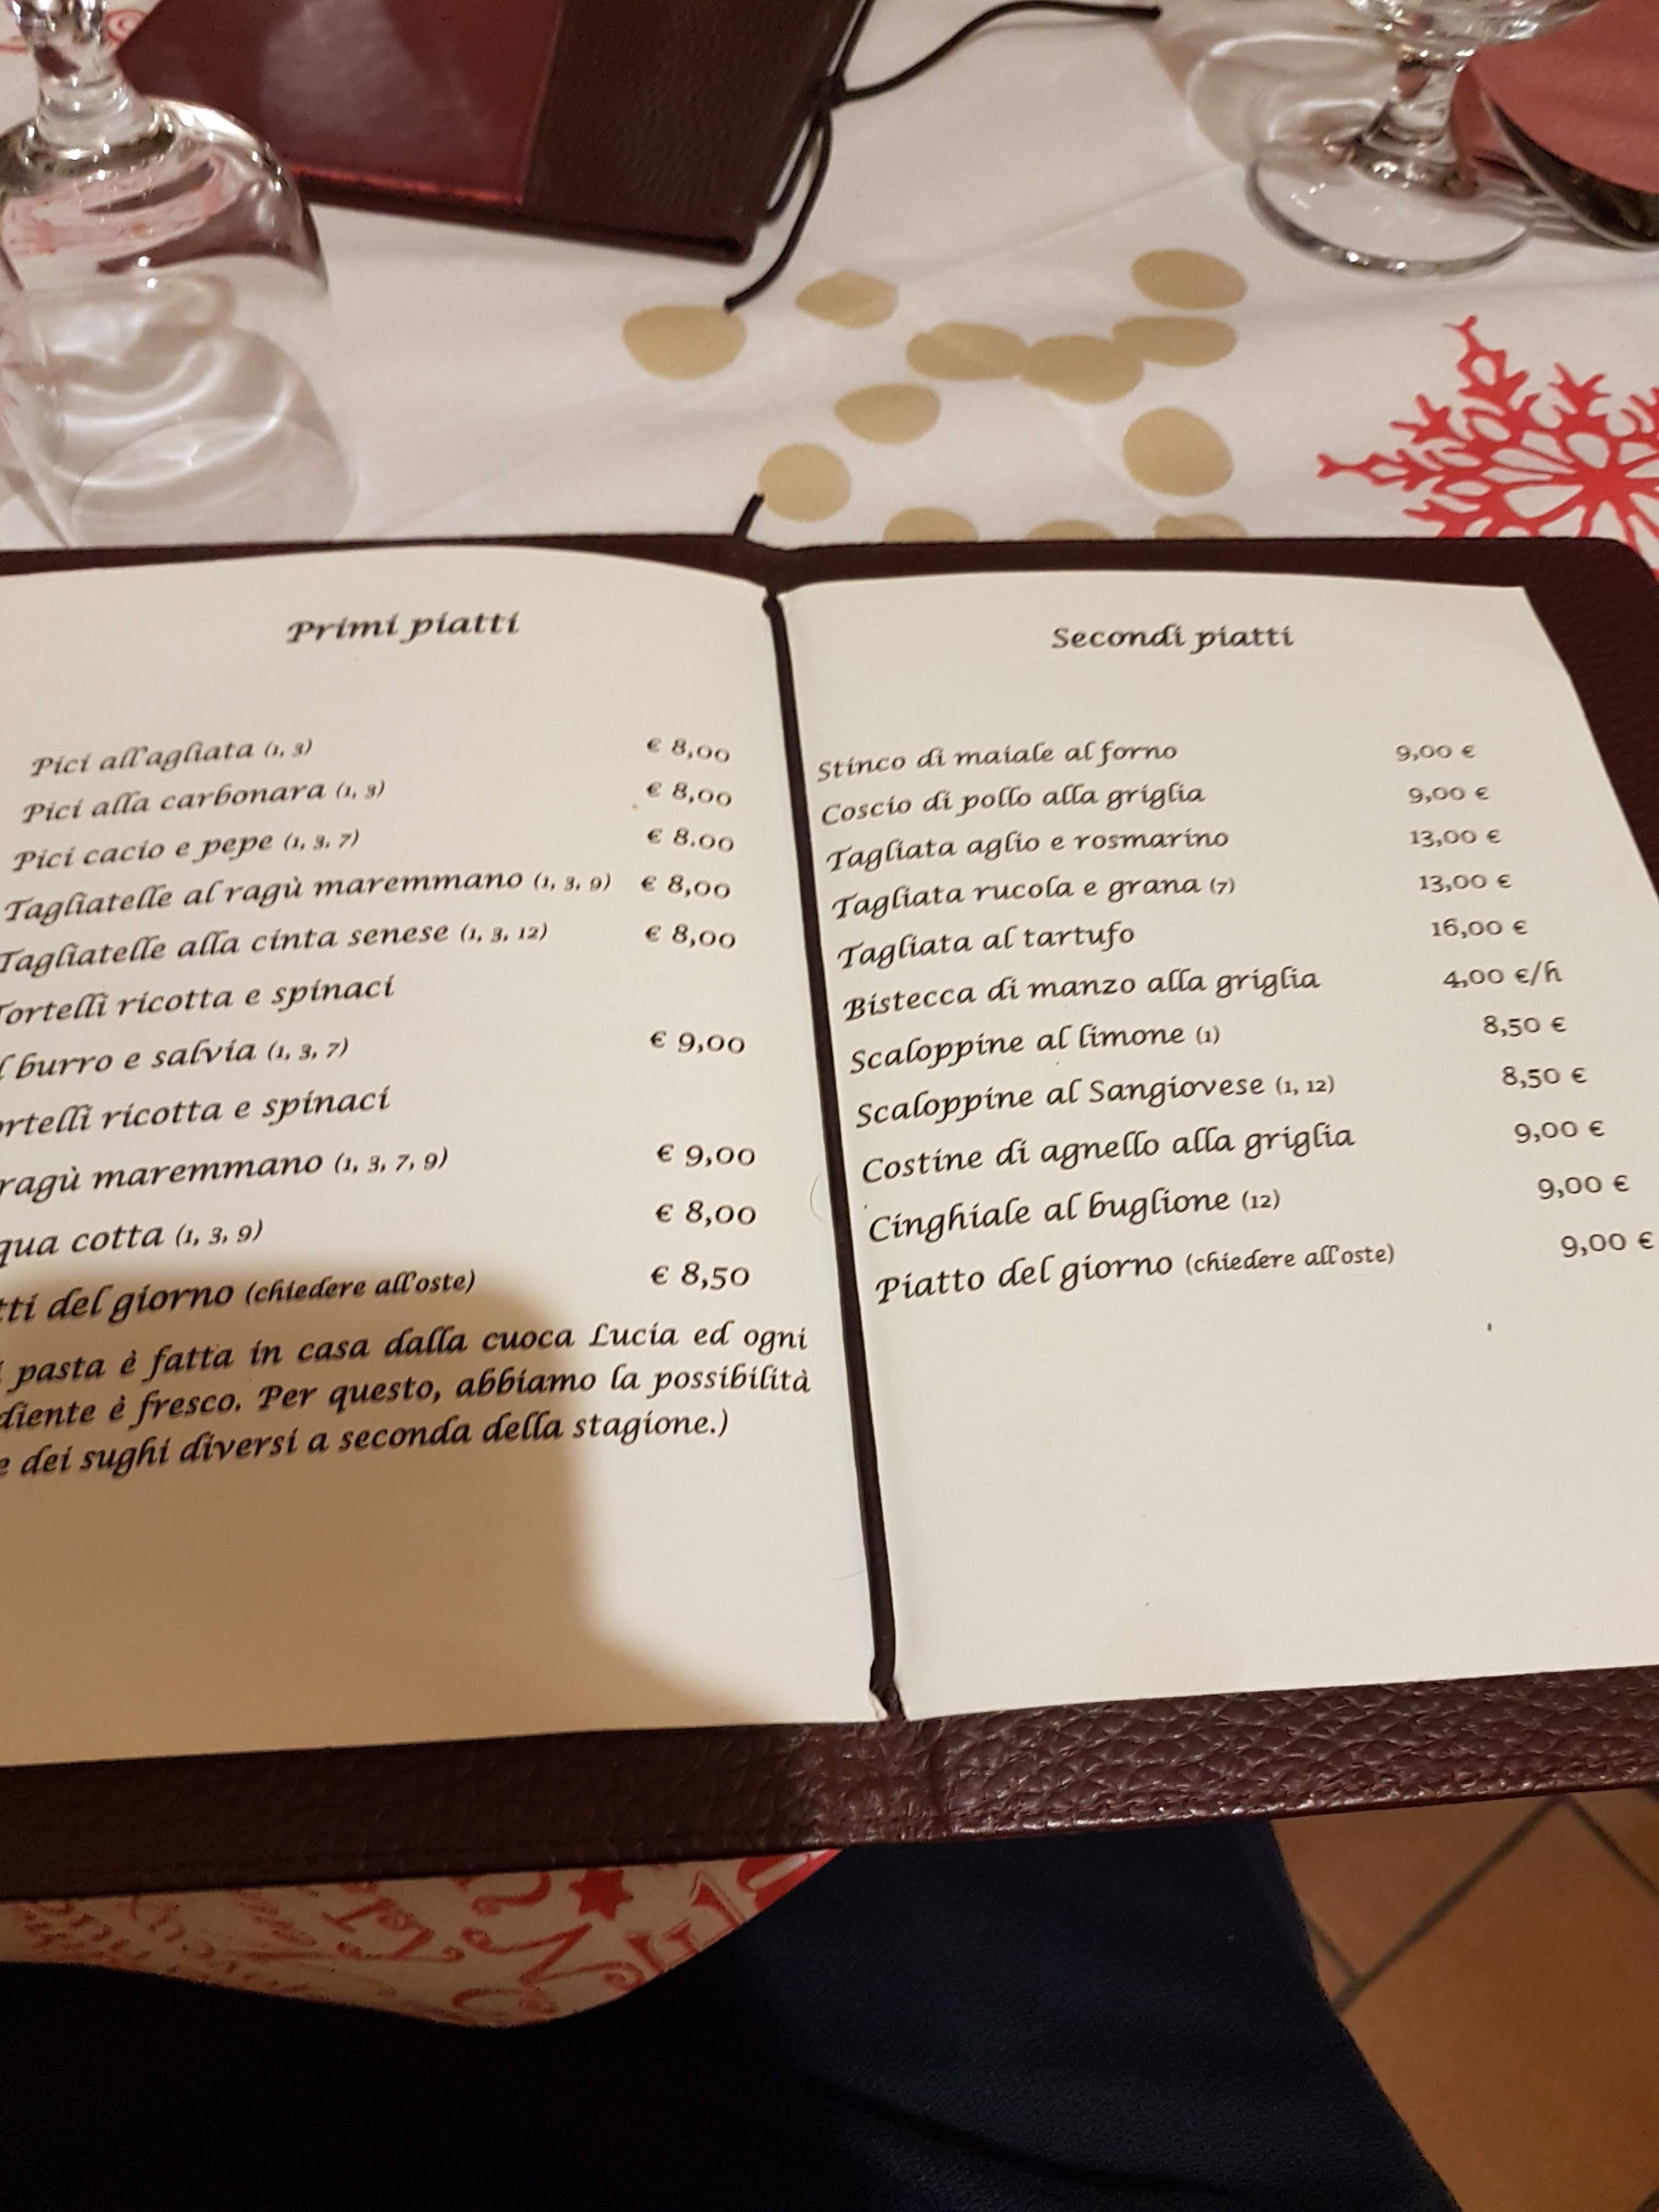 Primi piatti
Pici all'agliata (1, 3) € 8,00
Pici alla carbonara (1, 3) € 8,00
Pici cacio e pepe (1, 3, 7) € 8.00
Tagliatelle al ragù maremmano (1, 3, 9) € 8,00
Tagliatelle alla cinta senese (1, 3, 12) € 8,00
Tortelli ricotta e spinaci
l burro e salvia (1, 3, 7) € 9,00
ortelli ricotta e spinaci
ragù maremmano (1, 3, 7, 9) € 9,00
qua cotta (1, 3, 9) € 8,00
tti del giorno (chiedere all'oste) € 8,50
pasta è fatta in casa dalla cuoca Lucia ed ogni
diente è fresco. Per questo, abbiamo la possibilità
e dei sughi diversi a seconda della stagione.)
Secondi piatti
Stinco di maiale al forno 9,00 €
Coscio di pollo alla griglia 9,00 €
Tagliata aglio e rosmarino 13,00 €
Tagliata rucola e grana (7) 13,00 €
Tagliata al tartufo 16,00 €
Bistecca di manzo alla griglia 4,00 €/h
Scaloppine al limone (1) 8,50 €
Scaloppine al Sangiovese (1, 12) 8,50 €
Costine di agnello alla griglia 9,00 €
Cinghiale al buglione (12) 9,00 €
Piatto del giorno (chiedere all'oste) 9,00 €